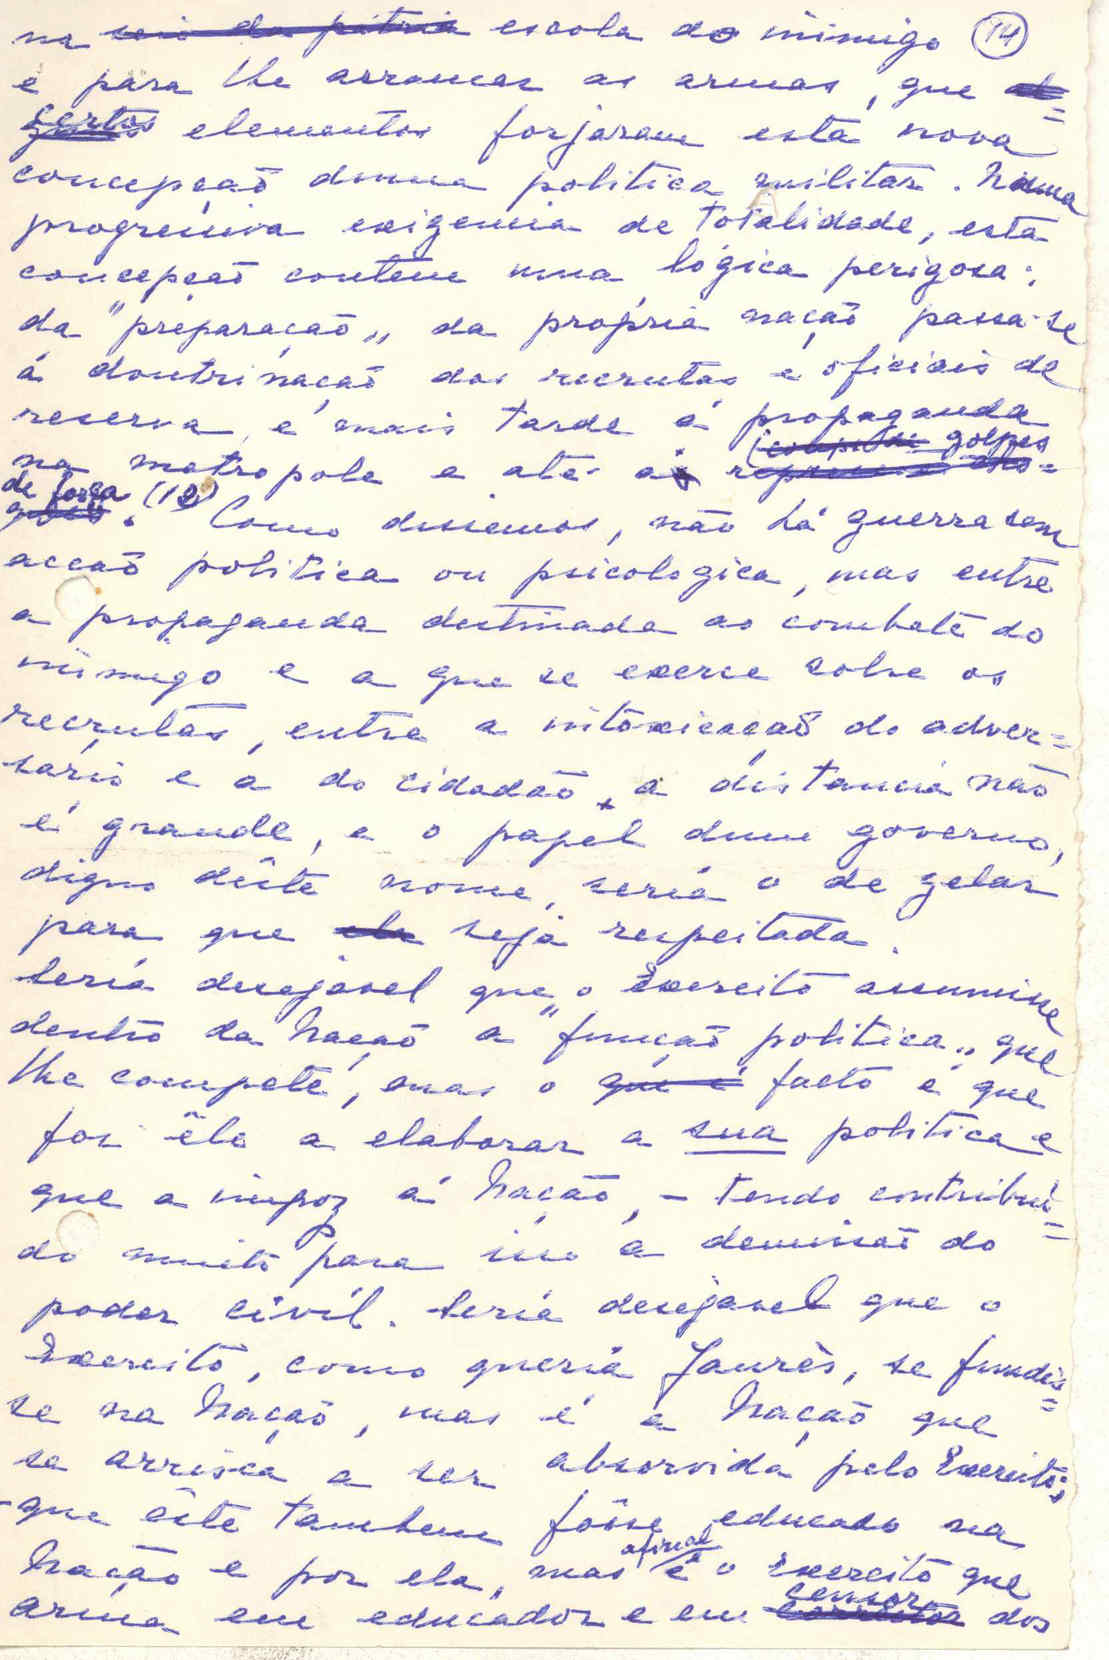 na ~~seio da pátria~~ escola do inimigo (14)
e para lhe arrancar as armas, que
certos elementos forjaram esta nova
concepção duma politica militar. Numa
progressiva exigencia de totalidade, esta
concepção contem uma lógica perigosa:
da "preparação" da própria nação passa-se
á doutrinação dos recrutas e oficiais de
reserva, e mais tarde á propaganda
na metropole e até aos golpes
de força (12). Como dissemos, não há guerra sem
acção politica ou psicologica, mas entre
a propaganda destinada ao combate do
inimigo e a que se exerce sobre os
recrutas, entre a intoxicação do adver=
sário e a do cidadão, a distancia não
é grande, e o papel dum governo,
digno dêste nome, seria o de zelar
para que ~~ela~~ seja respeitada.
Seria desejável que o Exercito assumisse
dentro da Nação a "função politica" que
lhe compete, mas o ~~que é~~ facto é que
foi êle a elaborar a sua politica e
que a impoz á Nação, - tendo contribui=
do muito para isso a demissão do
poder civil. Seria desejavel que o
Exercito, como queria Jaurès, se fundis=
se na Nação, mas é a Nação que
se arrisca a ser absorvida pelo Exercito;
-que êste tambem fôsse educado na
Nação e por ela, mas afinal é o Exercito que
arma em educador e em censor dos